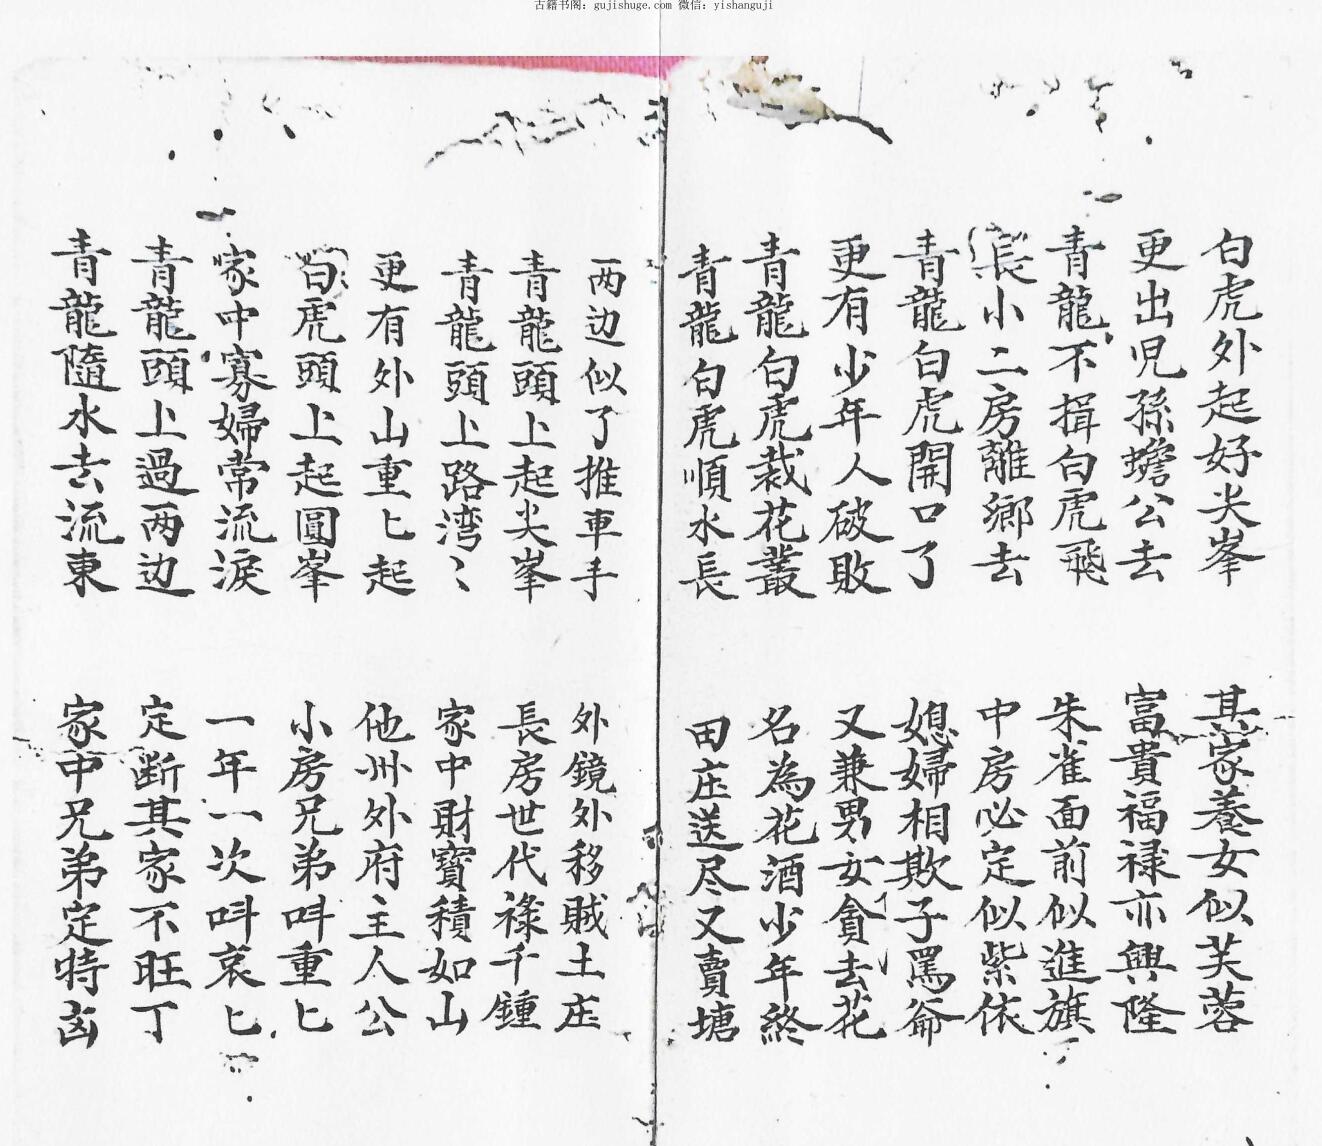 古籍书阁：gujishuge.com 微信：yishanguji
白虎外起好尖峯 其家養女似芙蓉
更出児孫蟾公去 富貴福禄亦興隆
青龍不揖白虎飛 朱雀面前似進旗
長小二房離鄉去 中房必定似紫依
青龍白虎開口了 媳婦相欺子罵爺
更有少年人破敗 又兼男女貪去花
青龍白虎栽花叢 名為花酒少年終
青龍白虎順水長 田庄送尽又賣塘
两边似了推車手 外鏡外移賊土庄
青龍頭上起尖峯 長房世代祿千鍾
青龍頭上路湾〻 家中財寶積如山
更有外山重匕起 他州外府主人公
白虎頭上起圓峯 小房兄弟叫重匕
家中寡婦常流淚 一年一次叫哀匕
青龍頭上過两边 定断其家不旺丁
青龍隨水去流東 家中兄弟定時凶